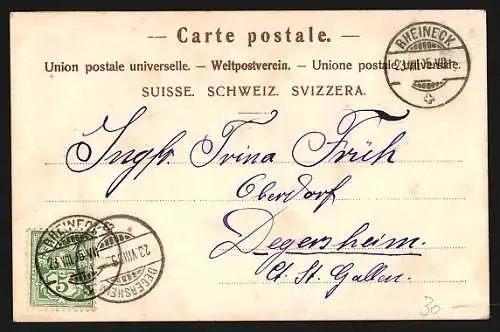 — Carte postale. —
Union postale universelle. – Weltpostverein. – Unione postale universale.
SUISSE. SCHWEIZ. SVIZZERA.
RHEINECK
23.VIII.05.VIII
Jngfr. Trina Früh
Oberdorf
Degersheim.
Ct. St. Gallen.
RHEINECK
DEGERSHEIM
23.VIII.05
5
30 –